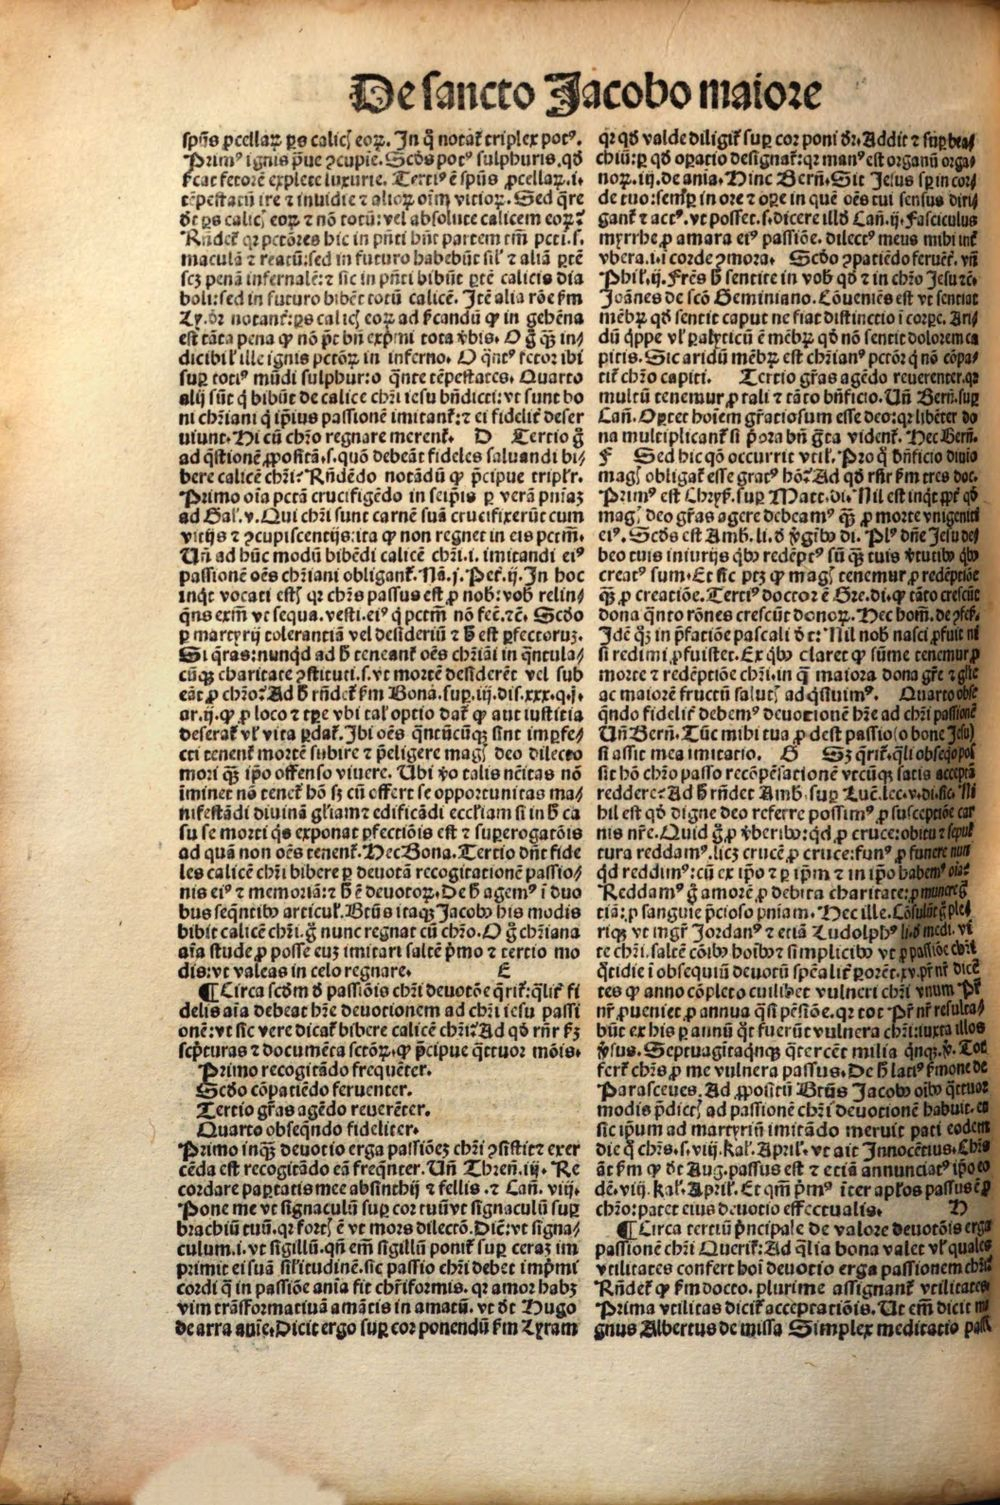 De sancto Jacobo maiore
spūs ꝓcellaꝝ ꝑs calicꝭ eoꝝ. In q̄ notat̄ triplex potꝰ.
Primꝰ ignis p̄ue ꝯcupīe. Scd̄s potꝰ sulphuris, qd̄
ſ̄cat fetorē explete luxurie. Tertiꝰ ē spūs ꝓcellaꝝ .i.
tēpestatū ire ⁊ inuidie ⁊ alioꝝ oīm vitioꝝ. Sed q̄re
d̄t ꝑs calicꝭ eoꝝ ⁊ nō totū: vel absoluce calicem eoꝝ?
Rn̄det̄ qꝛ pctōres hic in pn̄ti hn̄t partem tm̄ pcti .s.
maculā ⁊ reatū: sed in futuro habebūt sil̄ ⁊ aliā ꝑtē
scꝫ penā infernalē: ⁊ sic in pn̄ti bibūt ꝑtē calicis dia
boli: sed in futuro bibēt totū calicē. Itē alia rōe ẜm
Ly. dr̄ notant̄: ꝑs calicꝭ eoꝝ ad ſ̄candū ꝙ in gehēna
est tāta pena ꝙ nō pt̄ bn̄ exp̄mi tota v̄bis. O g̊ q̄ꝫ in-
dicibil̓ ille ignis pctōꝝ in inferno. O q̄ntꝰ fetor ibi
suꝑ totiꝰ mūdi sulphur: o q̄nte tēpestates. Quarto
alij sūt q̇ bibūt de calice chr̄i iesu bn̄dicti: vt sunt bo
ni chr̄iani q̇ ip̄ius passionē imitant̄: ⁊ ei fidelit̄ deser
uiunt. Hi cū chr̄o regnare merent̄. D Tertio g̊
ad q̄stionē ꝓpositā .s. quō debeāt fideles saluandi bi-
bere calicē chr̄i? Rn̄dēdo notādū ꝙ p̄cipue tripl̓r.
Primo oīa pctā crucifigēdo in seip̄is ꝑ verā pn̄iaꝫ
ad Gal̓. v. Qui chr̄i sunt carnē suā crucifixerūt cum
vitijs ⁊ ꝯcupiscentijs: ita ꝙ non regnet in eis pctm̄.
Un̄ ad hūc modū bibēdi calicē chr̄i .i. imitandi eiꝰ
passionē oēs chr̄iani obligant̄. Nā .j. Pet̄. ij. In hoc
inq̇t vocati estꝭ qꝛ chr̄s passus est ꝓ nob̄: vob̄ relin-
q̄ns exm̄ vt sequa. vesti. eiꝰ q̇ pctm̄ nō fec̄. ⁊c̄. Scd̄o
ꝑ martyrij tolerantiā vel desideriū ⁊ h̄ est ꝑfectoruꝫ.
Si q̄ras: nunqd̄ ad h̄ teneant̄ oēs chr̄iāi in q̄ntcula-
cūqꝫ charitate ꝯstituti .s. vt mortē desiderēt vel sub
eāt ꝓ chr̄o? Ad h̄ rn̄det̄ ẜm Bona. suꝑ .iij. dis. xxx. q. j.
ar. ij. ꝙ ꝓ loco ⁊ tꝑe vbi tal̓ optio dat̄ ꝙ aut iustitia
deserat̄ vl̓ vita ꝑdat̄. Ibi oēs q̄ntūcūqꝫ sint imꝑfe-
cti tenent̄ mortē subire ⁊ p̄eligere magꝭ deo dilecto
mori q̄ꝫ ip̄o offenso viuere. Ubi v̊o talis nēcitas nō
īminet nō tenet̄ hō sꝫ cū offert se oportunitas ma-
nifestādi diuinā gl̓iam ⁊ edificādi eccl̓iam si in h̄ ca
su se morti q̇s exponat ꝑfectiōis est ⁊ suꝑerogatōis
ad quā non oēs tenent̄. Hec Bona. Tertio dn̄t fide
les calicē chr̄i bibere ꝑ deuotā recogitationē passio-
nis eiꝰ ⁊ memoriā: ⁊ h̄ ē deuotoꝝ. De h̄ agemꝰ ī duo
bus seq̄ntibꝰ articul̓. Btūs itaqꝫ Jacobꝰ his modis
bibit calicē chr̄i. g̊ nunc regnat cū chr̄o. O g̊ chr̄iana
aīa stude ꝓ posse euꝫ imitari saltē p̄mo ⁊ tertio mo
dis: vt valeas in celo regnare. E
¶ Circa scd̄m d̄ passiōis chr̄i deuotōe q̄rit̄: q̄lit̄ fi
delis aīa debeat hr̄e deuotionem ad chr̄i iesu passi
onē: vt sic vere dicat̄ bibere calicē chr̄i? Ad qd̄ rn̄r ẜꝫ
scp̄turas ⁊ documēta sctōꝝ, ꝙ p̄cipue q̄ttuor mōis.
Primo recogitādo frequēter.
Scd̄o cōpatiēdo feruenter.
Tertio gr̄as agēdo reuerēter.
Quarto obseq̄ndo fideliter.
Primo inqꝫ deuotio erga passiōeꝫ chr̄i ꝯsistit ⁊ exer
cēda est recogitādo eā freq̄nter. Un̄ Thren̄. iij. Re
cordare paꝑtatis mee absinthij ⁊ fellis. ⁊ Can̄. viij.
Pone me vt signaculū suꝑ cor tuū vt signaculū suꝑ
brachiū tuū. qꝛ fortꝭ ē vt mors dilectō. Diē: vt signa-
culum .i. vt sigillū. qn̄ em̄ sigillū ponit̄ suꝑ ceraꝫ im
primit ei suā sil̓itudinē. sic passio chr̄i debet imp̄mi
cordi q̇ in passiōe anīa fit chr̄iformis. qꝛ amor habꝫ
vim trāsformatiuā amātis in amatū. vt d̄t Hugo
de arra anīe. Dicit ergo suꝑ cor ponendū ẜm Lyram
qꝛ qd̄ valde diligit̄ suꝑ cor poni dr̄. Addit ⁊ suꝑ bra-
chiū: ꝑ qd̄ oꝑatio designat̄: qꝛ manꝰ est organū orga-
noꝝ. iij. de anīa. Hinc Bern̄. Sit Jesus sꝑ in cor-
de tuo: senſꝑ in ore ⁊ oꝑe in quē oēs tui sensus diri-
gant̄ ⁊ actꝰ. vt posset .s. dicere illd̄ Can̄. ij. Fasciculus
myrrhe ꝓ amara eiꝰ passiōe. dilectꝰ meus mihi int̄
vbera .i. ī corde ꝯmora. Scd̄o ꝯpatiēdo feruēt̄. vn̄
Phil̓. ij. Frēs h̄ sentite in vob̄ qd̄ ⁊ in chr̄o Jesu ⁊c̄.
Joānes de scō Geminiano. Cōueniēs est vt sentiat
mēbꝝ qd̄ sentit caput ne fiat distinctio ī corꝑe. Ari-
dū q̇ppe vl̓ ꝑalyticū ē mēbꝝ qd̄ nō sentit dolorem ca
pitis. Sic aridū mēbꝝ est chr̄ianꝰ pctōr q̇ nō cōpa-
tit̄ chr̄o capiti. Tertio gr̄as agēdo reuerenter. qꝛ
multū tenemur ꝓ tali ⁊ tāto bn̄ficio. Un̄ Bern̄. suꝑ
Can̄. Oꝑtet hoīem gr̄atiosum esse deo: qꝛ libēter do
na multiplicant̄ si p̄ora bn̄ gr̄ta vident̄. Hec Bern̄.
F Sed hic qō occurrit vtil̓. Pro q̊ bn̄ficio diuio
magꝭ obligat̄ esse gratꝰ hō? Ad qd̄ rn̄r ẜm tres doc.
Primꝰ est Chryſ. suꝑ Matt. di. Nil est inq̇t ꝓpt̄ qd̄
magꝭ deo gr̄as agere debeamꝰ q̄ꝫ ꝓ morte vnigeniti
eiꝰ. Scd̄s est Amb. li. d̄ v̊gībꝰ di. Plꝰ dn̄e Jesu de-
beo tuis iniurijs qͥbꝰ redēptꝰ sū q̄ꝫ tuis v̊tutibꝰ qͥbꝰ
creatꝰ sum. Et sic ptꝫ ꝙ magꝭ tenemur ꝓ redēptiōe
q̄ꝫ ꝓ creatiōe. Tertiꝰ doctor ē Gre. di. ꝙ tāto crescūt
dona q̄nto rōnes crescūt donoꝝ. Hec hom̄. de ꝯfeſ.
Idē qꝫ in p̄fatiōe pascali d̄t: Nil nob̄ nasci ꝓfuit ni
si redimi ꝓfuisset. Ex qͥbꝰ claret ꝙ sūme tenemur ꝓ
morte ⁊ redēptiōe chr̄i. in q̊ maiora dona gr̄e ⁊ gl̓ie
ac maiorē fructū salutꝭ ad q̇siuimꝰ. Quarto obse
q̄ndo fidelit̄ debemꝰ deuotionē hr̄e ad chr̄i passionē
Un̄ Bern̄. Tūc mihi tua ꝓdest passio (o bone Jesu)
si assit mea imitatio. G Sꝫ q̄rit̄. q̄li obseq̊ pos
sit hō chr̄o passo recōpēsationē vtcūqꝫ satis acceptā
reddere? Ad h̄ rn̄det Amb̄. suꝑ Luē. lec. v. di. sic. Ni
hil est qd̄ digne deo referre possimꝰ ꝓ susceptiōe car
nis nr̄e. Quid g̊ ꝓ v̊beribꝰ: qd̄ ꝓ cruce: obitu ⁊ sepul
tura reddamꝰ. licꝫ crucē ꝓ cruce: funꝰ ꝓ funere nun
qd̄ reddimꝰ: cū ex ip̄o ⁊ ꝑ ip̄m ⁊ in ip̄o habemꝰ oīa?
Reddamꝰ g̊ amorē ꝓ debita charitate: ꝓ munere gr̄a
tiā: ꝓ sanguie p̄cioso pn̄iam. Hec ille. Cōsulūt g̊ ple-
riqꝫ vt mgr̄ Jordanꝰ ⁊ etiā Ludolphꝰ li. d̄ medi. vi
te chr̄i. saltē cōībꝰ hoībꝰ ⁊ simplicibꝰ vt ꝓ passiōe chr̄i
q̄tidie ī obsequiū deuotū spēalit̄ ꝑorēt. xv. pr̄ nr̄ dicē
tes ꝙ anno cōpleto cuilibet vulneri chr̄i vnum Pr̄
nr̄ ꝓueniet ꝓ annua q̄si pēsiōe. qꝛ tot Pr̄ nr̄ resulta-
būt ex his ꝑ annū q̊t fuerūt vulnera chr̄i: iuxta illos
v̊sus. Septuagīta q̇nqꝫ q̄tercēt milia q̇nqꝫ. v̊. Tot
fert̄ chr̄s ꝓ me vulnera passus. De h̄ latiꝰ ẜmone de
Parasceues. Ad ꝓpositū Btūs Jacobꝰ oībꝰ q̄ttuor
modis p̄dictꝭ ad passionē chr̄i deuotionē habuit. et
sic ip̄um ad martyriū imitādo meruit pati eodem
die q̊ chr̄s .s. viij. kal̓. April̓. vt ait Innocētius. Chrs
at̄ ẜm ꝙ d̄t Aug. passus est ⁊ etiā annunciatꝰ ip̄o eo
dē. viij. kal̓. April̓. Et qm̄ p̄mꝰ īter apl̓os passus ē ꝓ
chr̄o: patet eius deuotio effectualis. H
¶ Circa tertiū p̄ncipale de valore deuotōis erga
passionē chr̄i Querit̄: Ad q̄lia bona valet vl̓ quales
vtilitates confert hoī deuotio erga passionem chr̄i?
Rn̄det̄ ꝙ ẜm docto. plurime assignant̄ vtilitates.
Prima vtilitas dicit̄ acceptatiōis. Ut em̄ dicit ma
gnus Albertus de missa Simplex meditatio pass